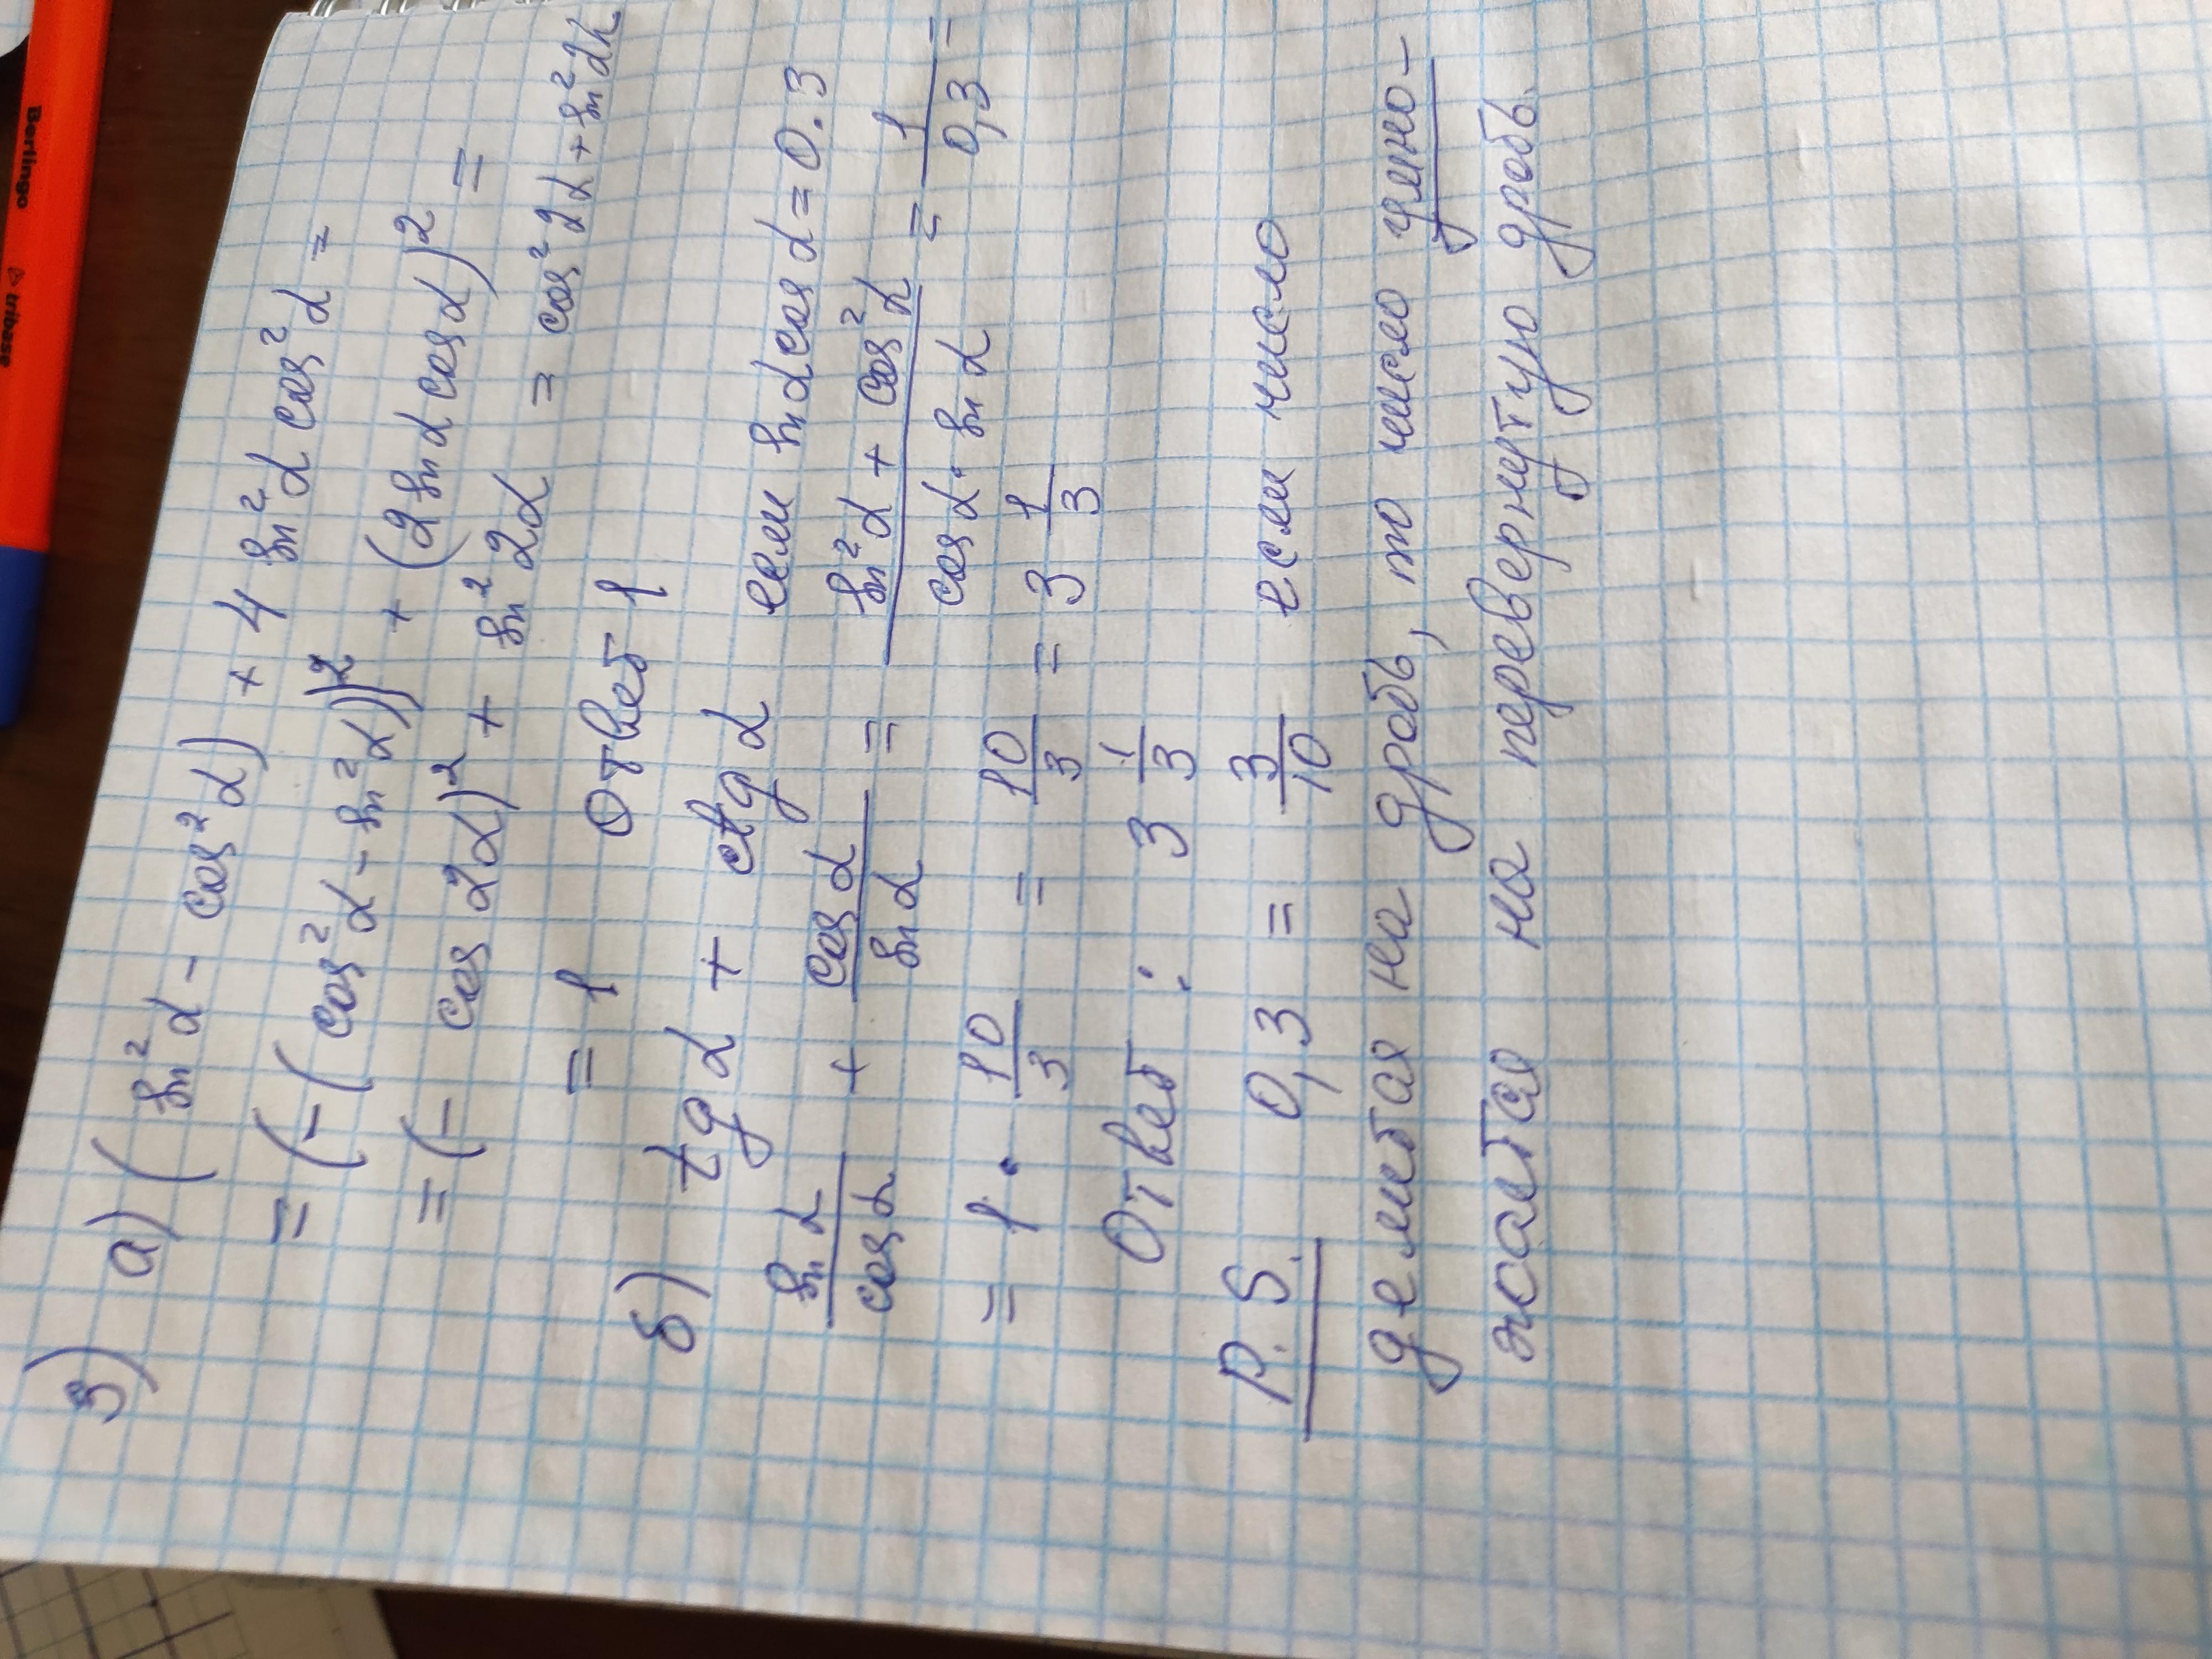 3) а) (sin²α - cos²α) + 4 sin²α cos²α =
= (-(cos²α - sin²α))² + (2 sin α cos α)² =
= (- cos 2α)² + sin² 2α = cos² 2α + sin² 2α
= 1 Ответ 1
б) tg α + ctg α если sin α cos α = 0.3
sin α / cos α + cos α / sin α = sin²α + cos²α / cos α · sin α = 1 / 0,3 =
= 1 · 10/3 = 10/3 = 3 1/3
Ответ : 3 1/3
P.S. 0,3 = 3/10 если число
делится на дробь, то число умно-
жается на перевернутую дробь.
Berlingo tribase